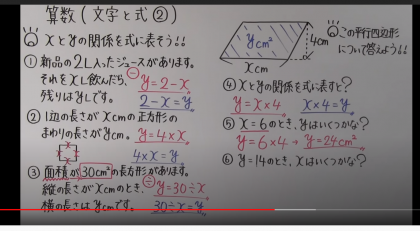 算数(文字と式②)
xとyの関係を式に表そう!!
①新品の2L入ったジュースがあります。
それをxL飲んだら、
残りはyLです。
y=2-x
2-x=y
②1辺の長さがxcmの正方形の
まわりの長さがycm。
y=4×x
4×x=y
x
x
③面積が30cm²の長方形があります。
縦の長さがxcmのとき、
横の長さはycmです。
y=30÷x
30÷x=y
ycm²
4cm
xcm
この平行四辺形
について答えよう!!
④xとyの関係を式に表すと?
y=x×4
x×4=y
⑤x=6のとき、yはいくつかな?
y=6×4→y=24cm²
⑥y=14のとき、xはいくつかな?